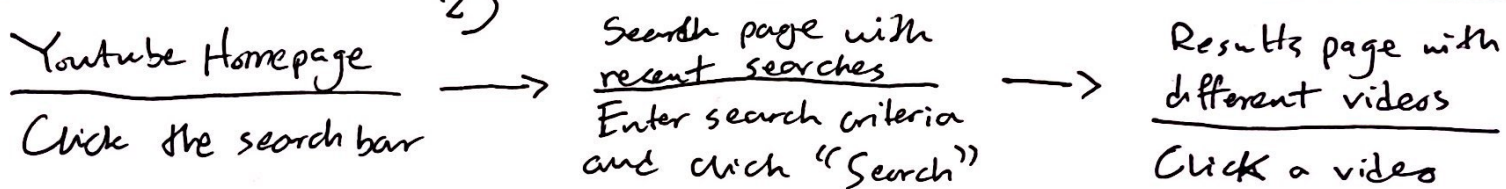 2)
Youtube Homepage
Click the search bar
Search page with
recent searches
Enter search criteria
and click "Search"
Results page with
different videos
Click a video